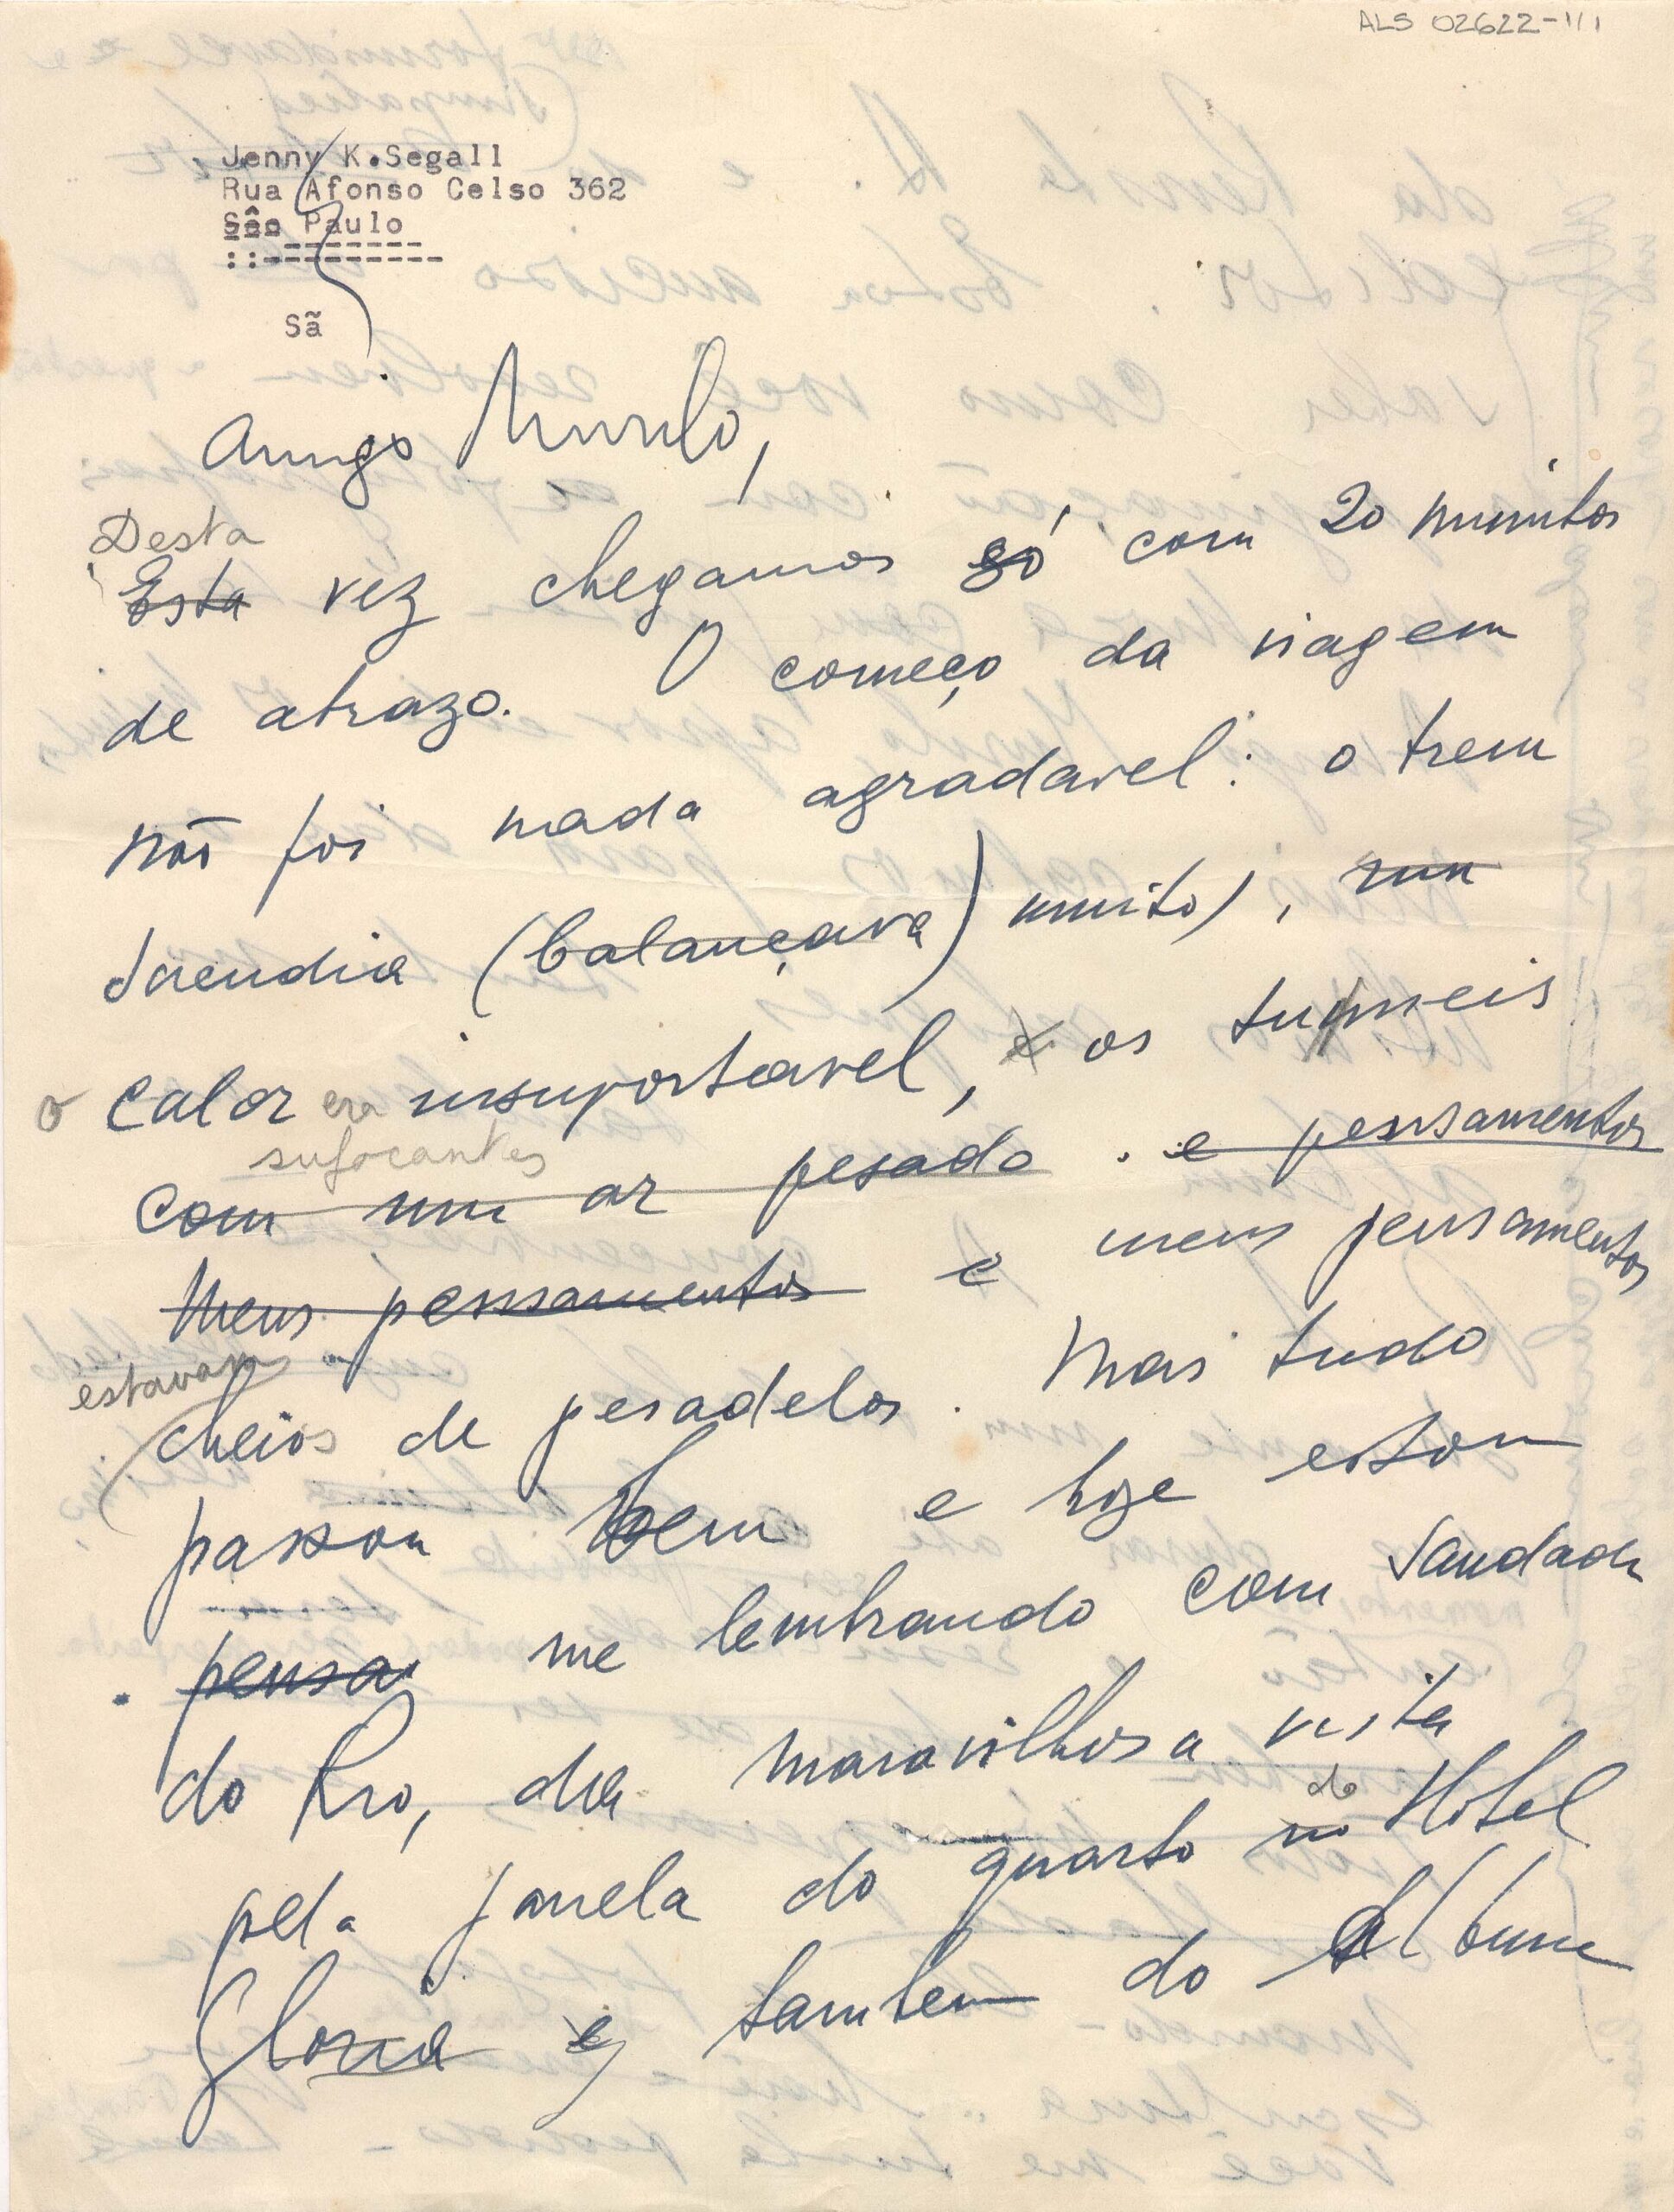 ALS 02622-1/1
Jenny K.Segall
Rua Afonso Celso 362
São Paulo
::----------
Sã
Amigo Murilo,
Desta
Esta vez chegamos só com 20 minutos
de atrazo. O começo da viagem
não foi nada agradavel: o trem
sacudia (balançava) muito), num
o calor era insuportavel, e os tunneis
sufocantes
com um ar pesado . e pensamentos
Meus pensamentos e meus pensamentos
estavam
cheios de pesadelos. Mas tudo
passou bem e hoje estou
pensa me lembrando com saudade
do Rio, da maravilhosa vista
do
pela janela do quarto no Hotel
Gloria e, tambem do Album